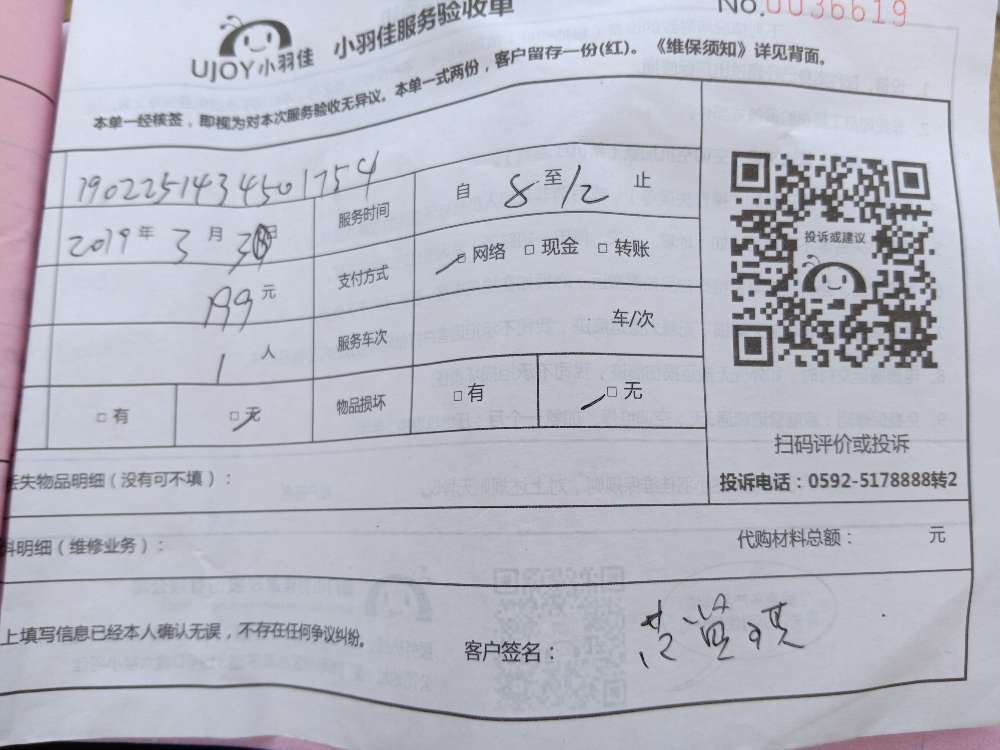 UJOY小羽佳 小羽佳服务验收单 No.0036619
本单一经核签，即视为对本次服务验收无异议。本单一式两份，客户留存一份(红)。《维保须知》详见背面。
1902251434501754 服务时间 自 8 至 12 止
2019年 3 月 30日
199 元 支付方式 □网络 □现金 □转账
1 人 服务车次 车/次
□有 □无 物品损坏 □有 □无
投诉或建议
扫码评价或投诉
投诉电话：0592-5178888转2
丢失物品明细（没有可不填）：
料明细（维修业务）： 代购材料总额： 元
上填写信息已经本人确认无误，不存在任何争议纠纷。 客户签名：